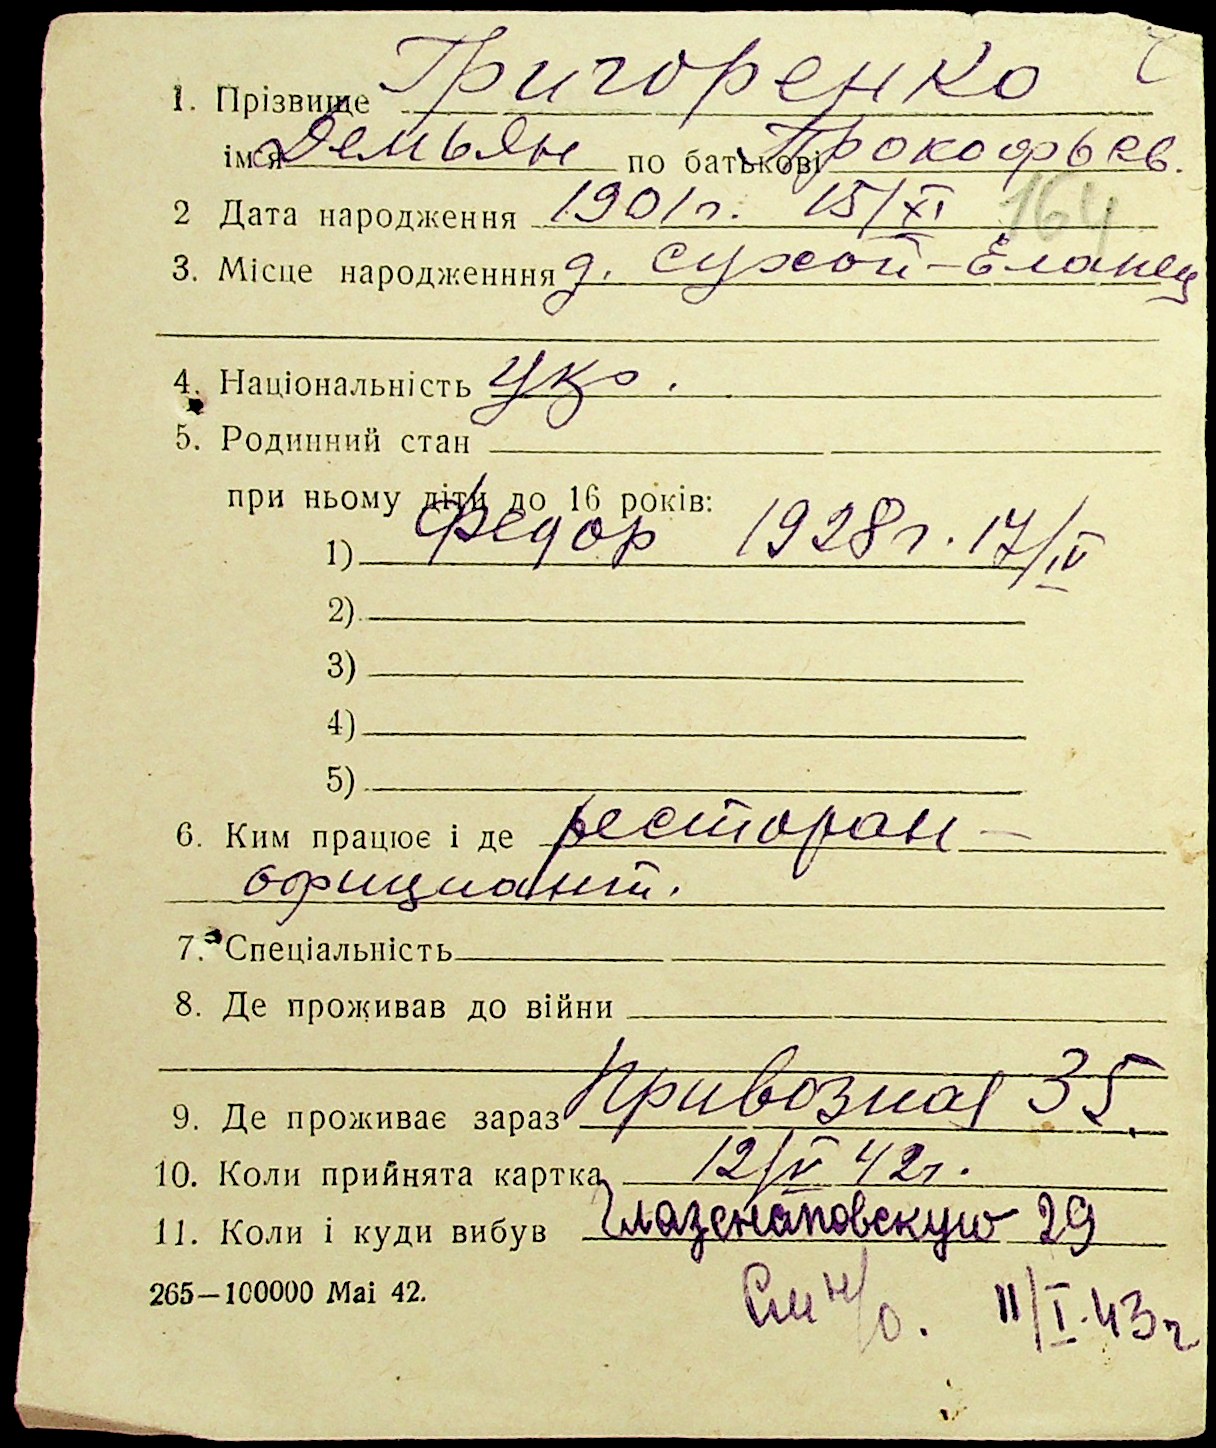 1. Прізвище Григоренко
імя Демьян по батькові Прокофьев.
2 Дата народження 1901г. 15/XI 164
3. Місце народженння д. Сухой-Еланец
4. Національність Укр.
5. Родинний стан
при ньому діти до 16 років:
1) Федор 1928г. 17/IV
2)
3)
4)
5)
6. Ким працює і де ресторан -
официант.
7. Спеціальність
8. Де проживав до війни
9. Де проживає зараз Привозная 35.
10. Коли прийнята картка 12/V 42г.
11. Коли і куди вибув Глазенаповскую 29
265—100000 Mai 42. См н/о. 11/I.43г